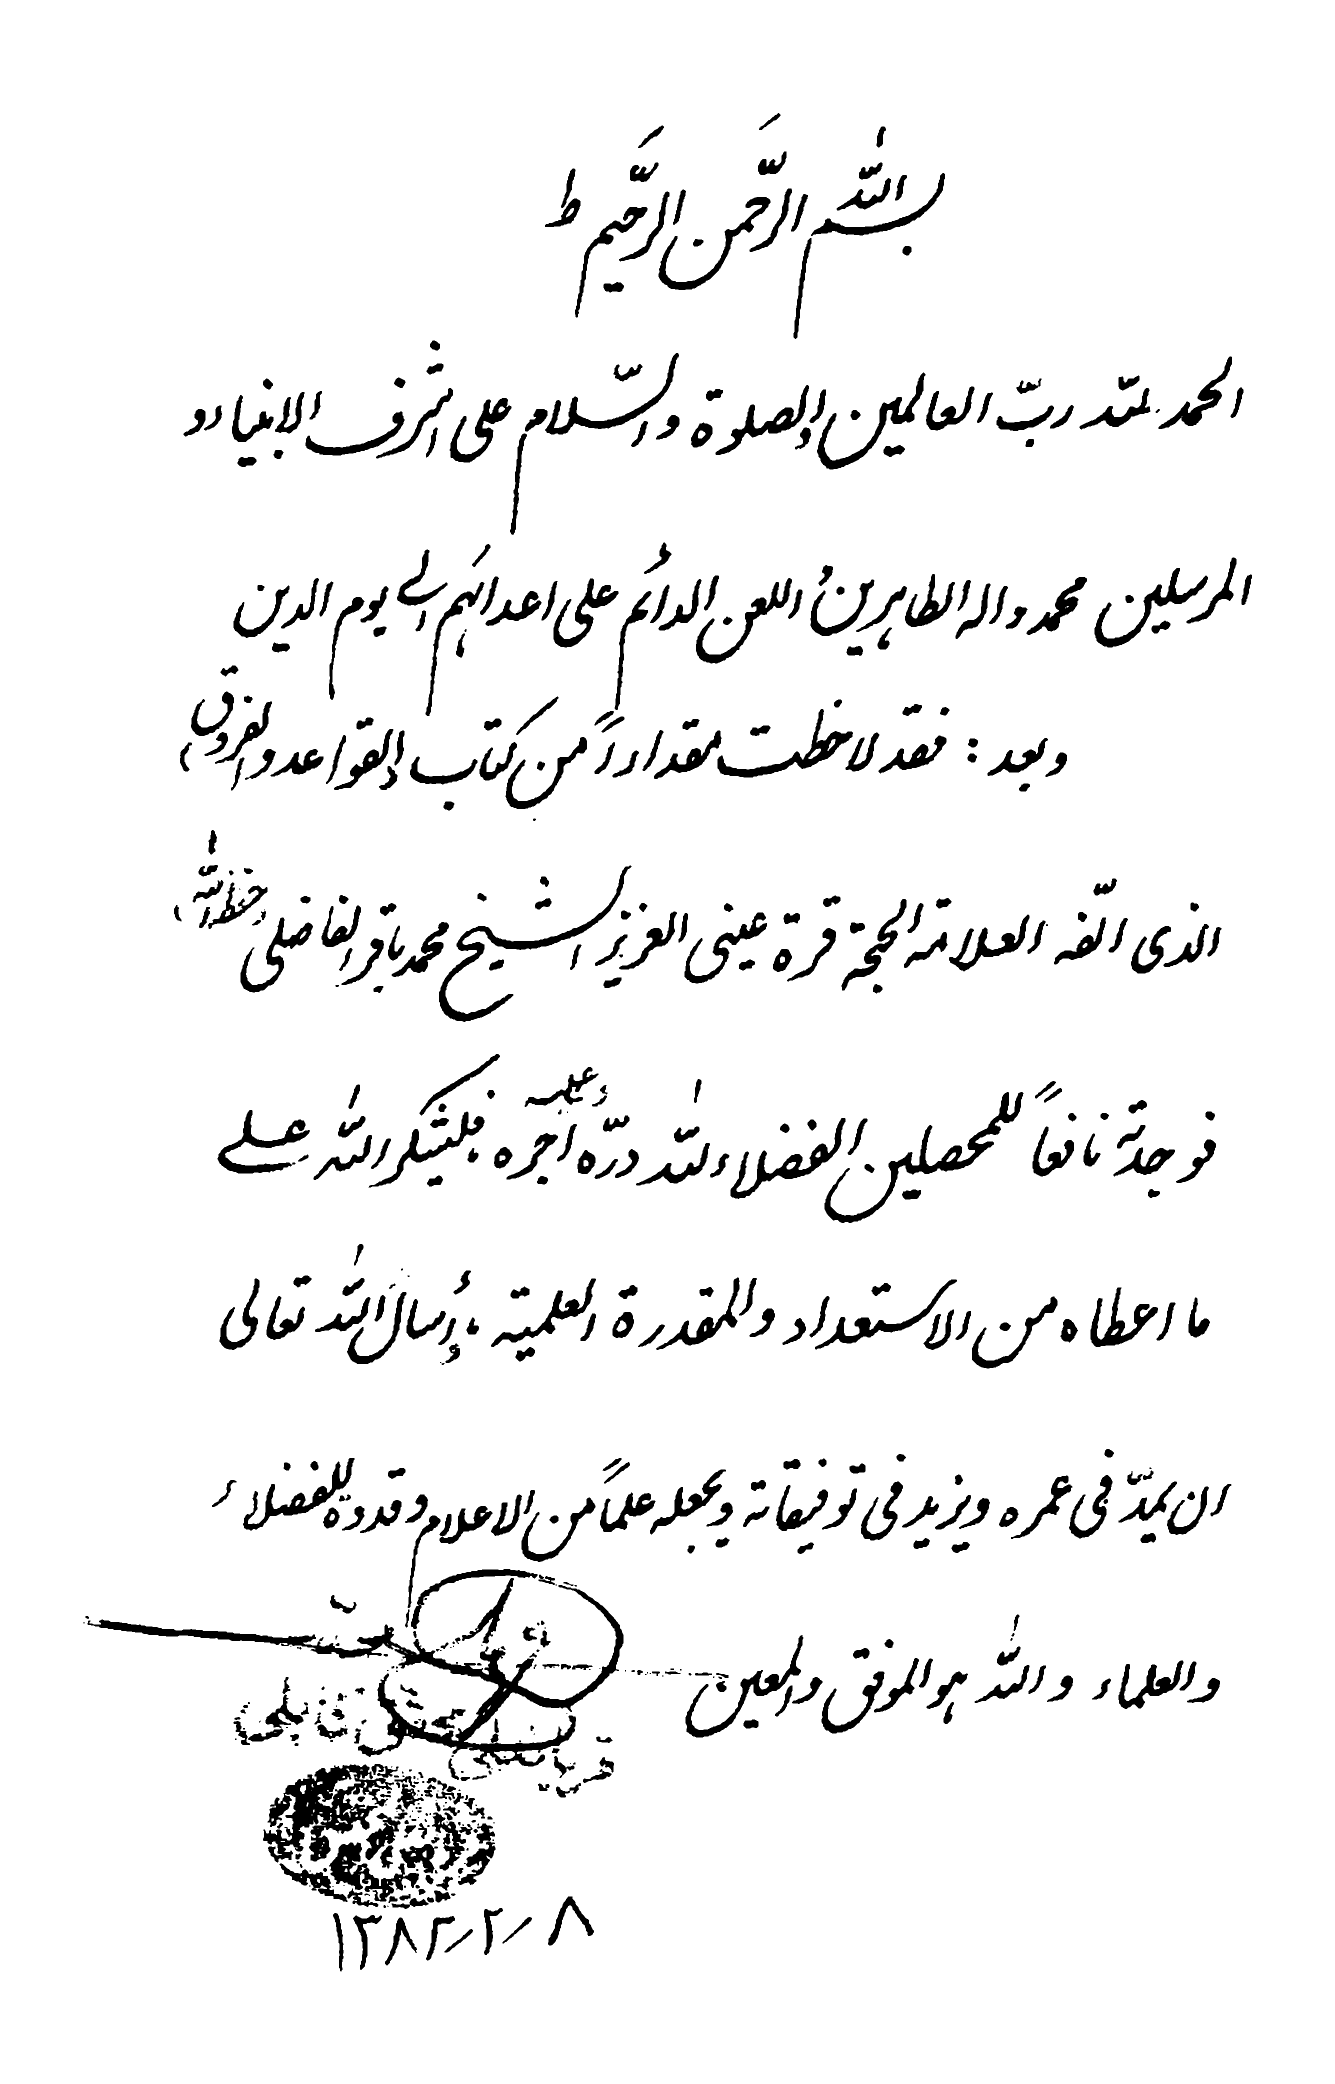 بسم الله الرَّحمن الرَّحيم ط
الحمد لله ربّ العالمين والصلوة والسّلام على اشرف الانبياء و
المرسلين محمد واله الطاهرين و اللعن الدائم على اعدائهم الى يوم الدين
وبعد : فقد لاحظت مقداراً من كتاب (القواعد والفروق)
الذى الّفه العلامة الحجة قرة عينى العزيز الشيخ محمد باقر الفاضلى (حفظه الله)
فوجدته نافعاً للمحصلين الفضلاء لله درّه وعليه اجره فليشكر الله على
ما اعطاه من الاستعداد والمقدرة العلمية ، وأسال الله تعالى
ان يمدّ فى عمره ويزيد فى توفيقاته ويجعله علماً من الاعلام و قدوة للفضلاء
والعلماء والله هو الموفق والمعين
قربانعلى محقق كابلى
٨ / ٢ / ١٣٨٢